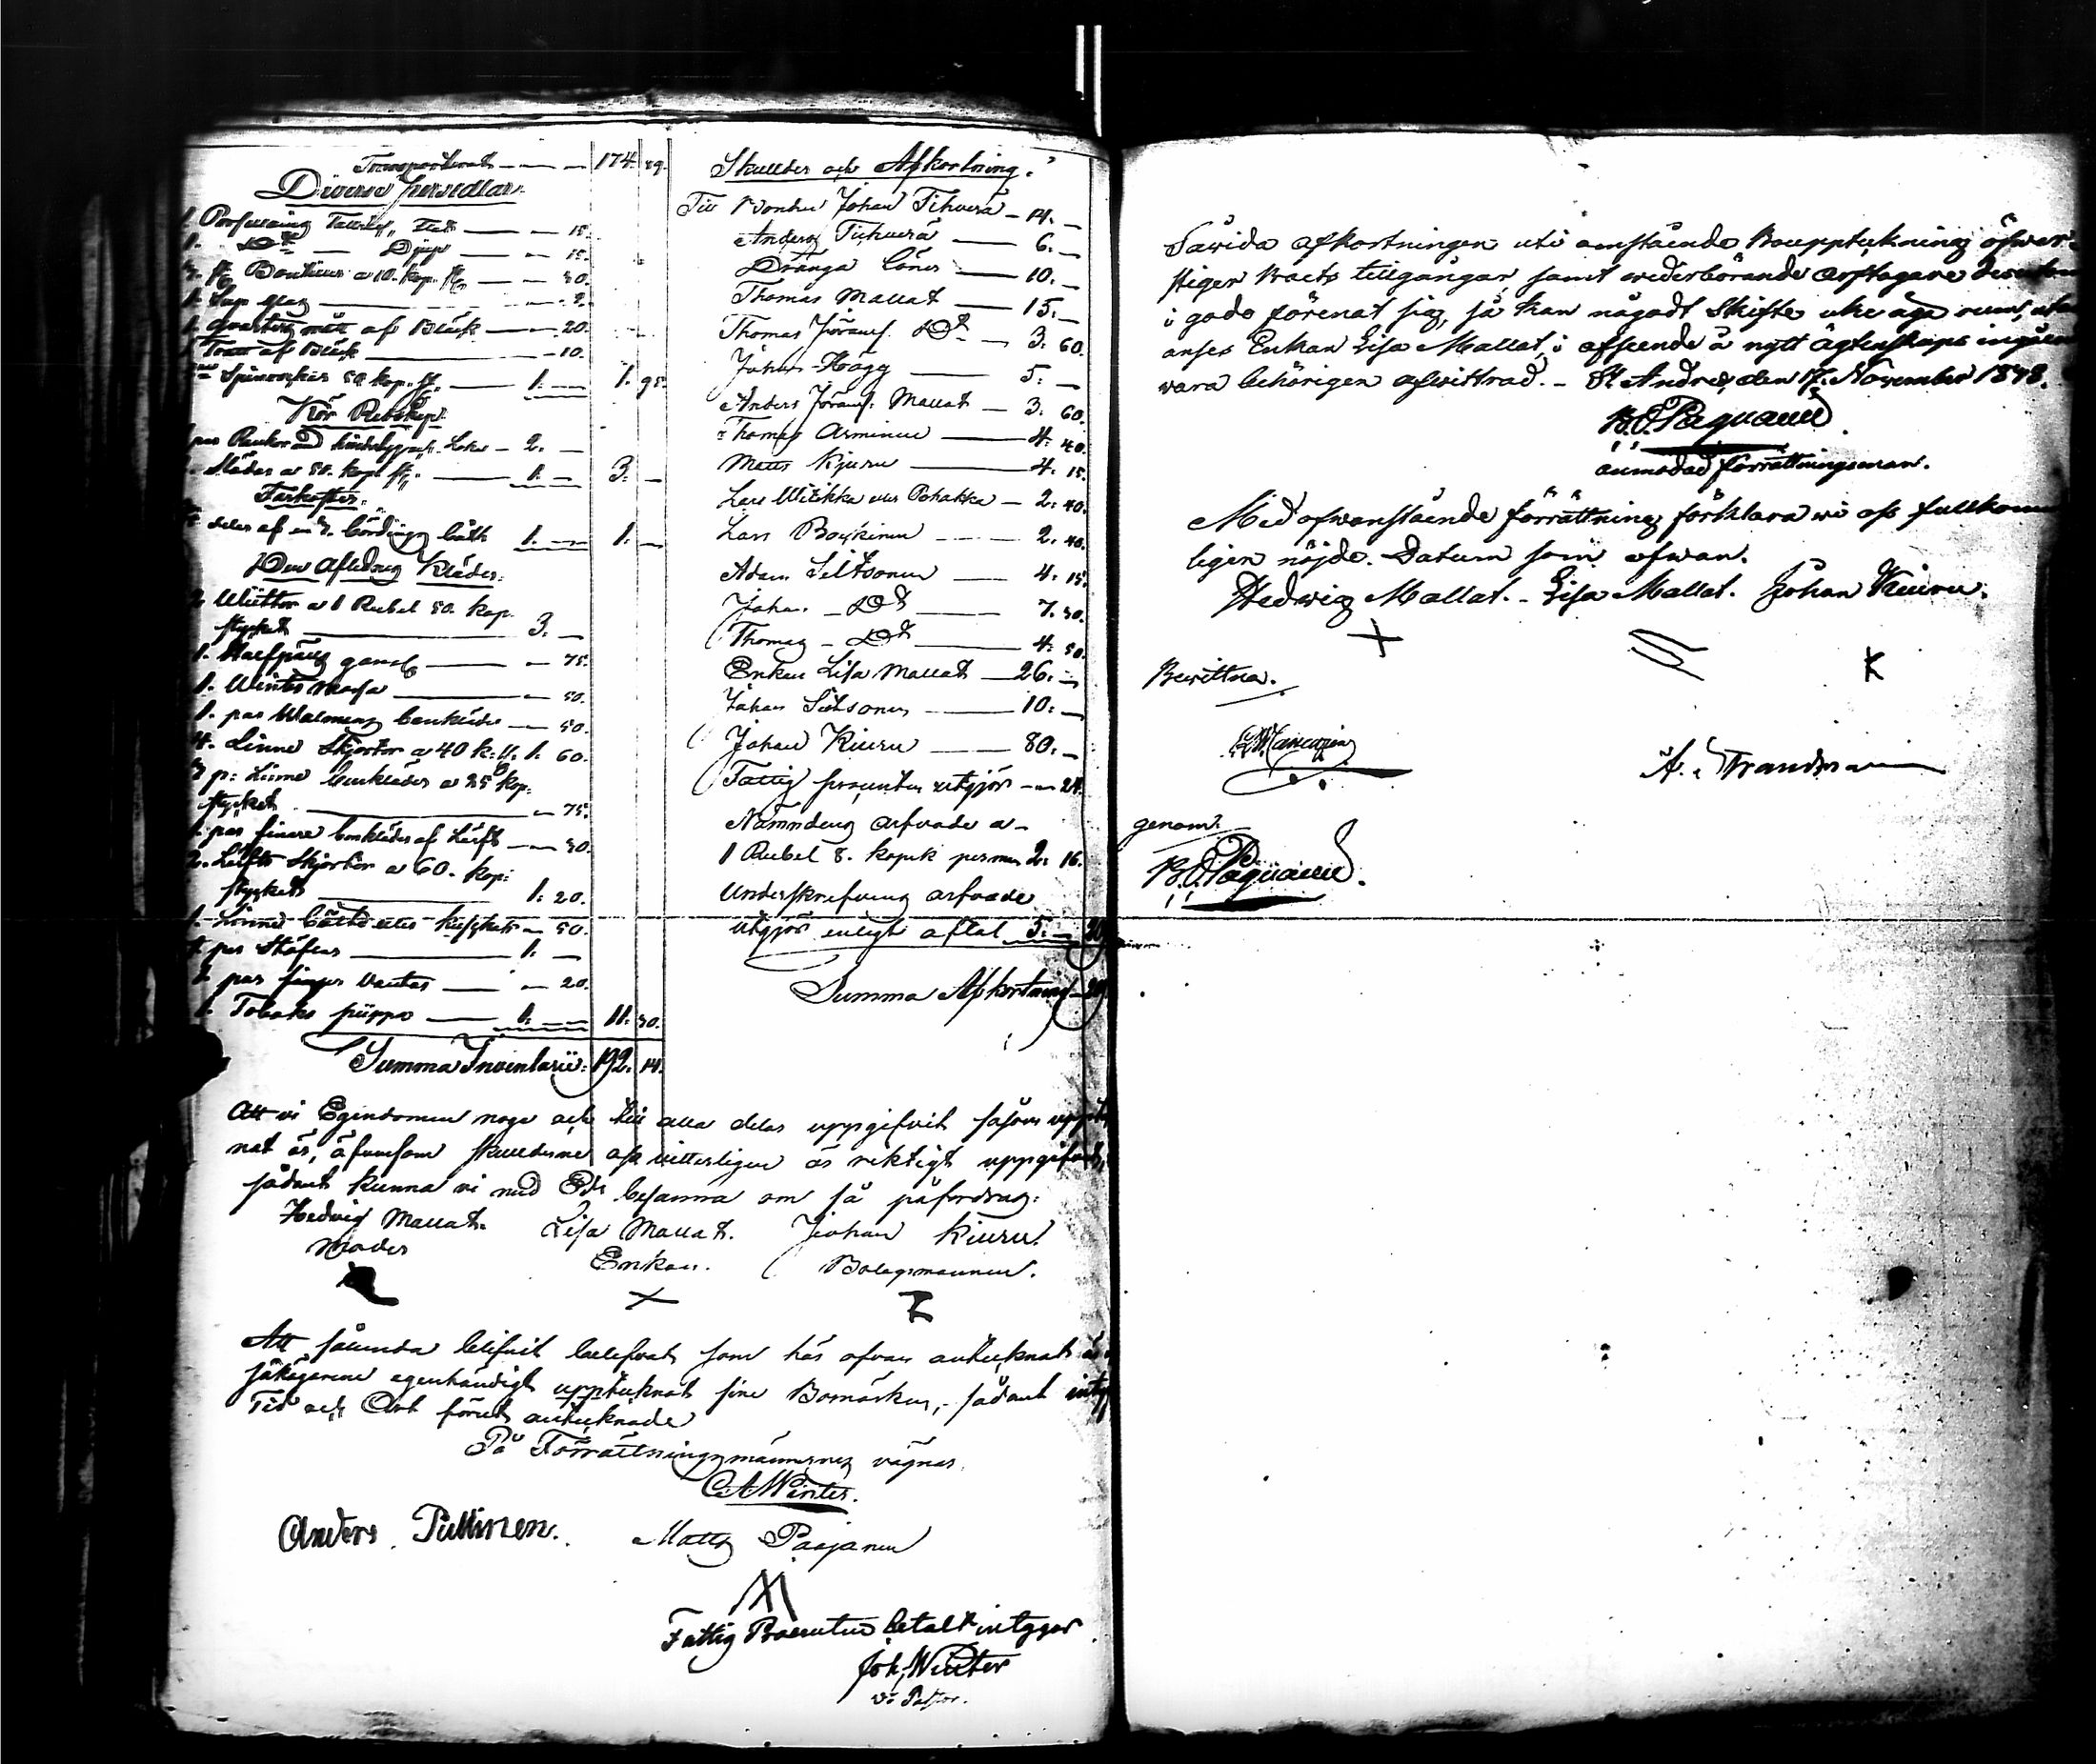 Transporterat — 174. 29.
Diverse persedlar.
1. Porslaing Tallrik, flat — 15.
1. Dito — Djup — 15.
3. st Boutiller a 10. kop. st — 30.
1. Sup glas — 2.
1. quarters mått af Bläck — 20.
1 Tratt af Bläck — 10.
Spinrockar 50 kop. st. — 1. — 1. 95.
Kör Redskap.
par Rankor med — 2. —
Slädar a 50. kop. st. — 1. — 3. —
Farkoster.
delar af en 3. bördings båth 1. — 1. —
Den Aflidnes Kläder.
2 Wüttor a 1 Rubel 50. kop.
stycket — 3. —
1. Halfpäls gamal — 75.
1. Winter Mössa — 50.
1. par Walmans benkläder — 50.
4. Linne Skjortor a 40 k: st. 1. 60.
3 p: Linne benkläder a 25 kop:
stycket — 75.
1. par finare benkläder af Läift — 30.
2. Läifts Skjortor a 60. kop:
stycket — 1: 20.
1. Linne — 50.
1 par Stöflar — 1. —
2 par finger Vantar — 20.
1. Tobaks piippo — 1. — 11. 30.
Summa Inventarii: 192. 14.
Skullder och Afkortning.
Till Bonden Johan Tihverä — 14. —
Anders Tiihverä — 6. —
Dränga Löner — 10. —
Thomas Mallat — 15. —
Thomas Jöransf. Dt — 3. 60.
Johan Hägg — 5. —
Anders Jöransf. Mallat — 3. 60.
Thomas Arminen — 4. 40.
Matts Kjuru — 4. 15.
Lars Wiikka — 2. 40.
Lars — 2. 40.
Adam Siitsonen — 4. 15.
Johan — Dt — 7. 30.
Thomas — Dt — 4. 50.
Enkan Lisa Mallat — 26. —
Johan Siitsonen — 10. —
Johan Kiuru — 80. —
Fattig procenten utgjör — 24.
Nämndens arfvode a —
1 Rubel 8. kopek per man 2. 16.
Underskrifning arfvode
utgjör enligt aftal 5. —
Summa Afkortning
Att vi Egendomen noga och till alla delar uppgifvit såsom
nat är, äfvensom skullderne oss vitterligen är riktigt uppgifvet,
sådant kunna vi med Ed besanna om så påfordras:
Hedvig Mallat. Lisa Mallat. Johan Kiuru.
Moder Enkan. Bolagsmannen.
Att sålunda blifvit bellefvat som här ofvan antecknat är
säkägarene egenhändigt upptecknat sine Bomärken, sådant
Tid och Ort förut antecknade
På Förrättningsmännernes vägnar.
CAWinter.
Anders Pullinen. Matts Paajanen
Fattig Procenten betalt intygar
Joh. Winter
v: Pastor.
Såvida afkortningen uti omstående Bouppteckning öfver-
stiger Boets tillgångar, samt vederbörande arftagare
i godo förenat sig, så kan någodt Skifte icke äga rum,
anses Enkan Lisa Mallat, i afseende å nytt ägtenskaps
vara behörigen afwittrad. — St Andreæ, den 17. November 1848.
anmodad förrättningsman.
Med ofvanstående förrättning förklara wi oss fullkom
ligen nöjde. Datum som ofwan.
Hedwig Mallat. — Lisa Mallat. Johan Kiuru.
Bewittna.
A. Strandman
genom.